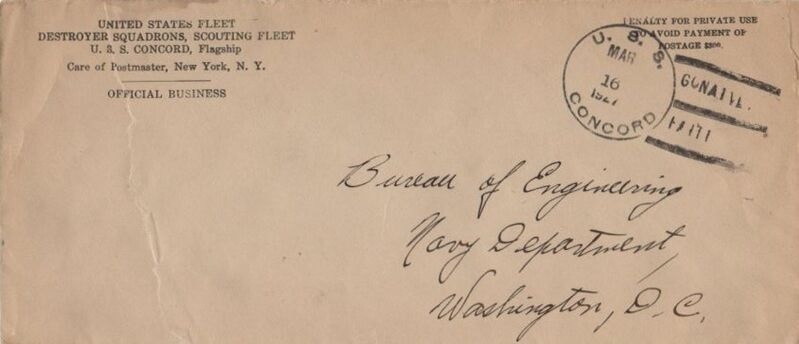 UNITED STATES FLEET
DESTROYER SQUADRONS, SCOUTING FLEET
U. S. S. CONCORD, Flagship
Care of Postmaster, New York, N. Y.
OFFICIAL BUSINESS
PENALTY FOR PRIVATE USE
TO AVOID PAYMENT OF
POSTAGE $300.
U. S. S.
MAR
16
1927
CONCORD
GONAIVE.
HAITI
Bureau of Engineering
Navy Department,
Washington, D. C.